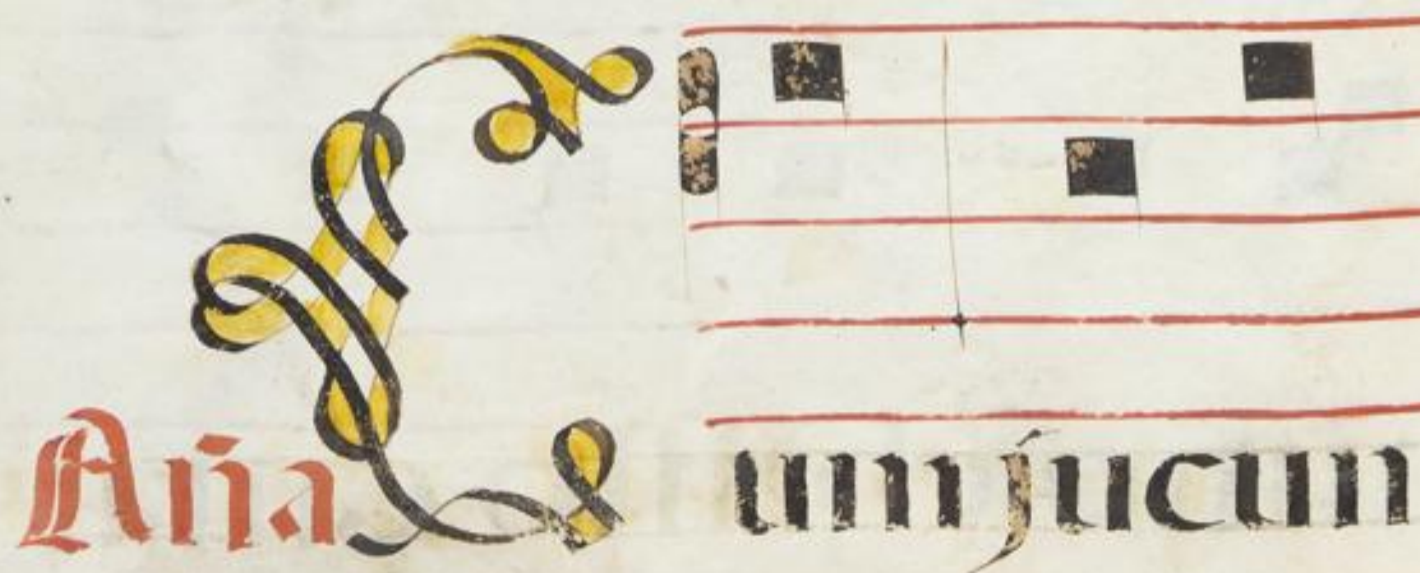 Aña Cum jucun